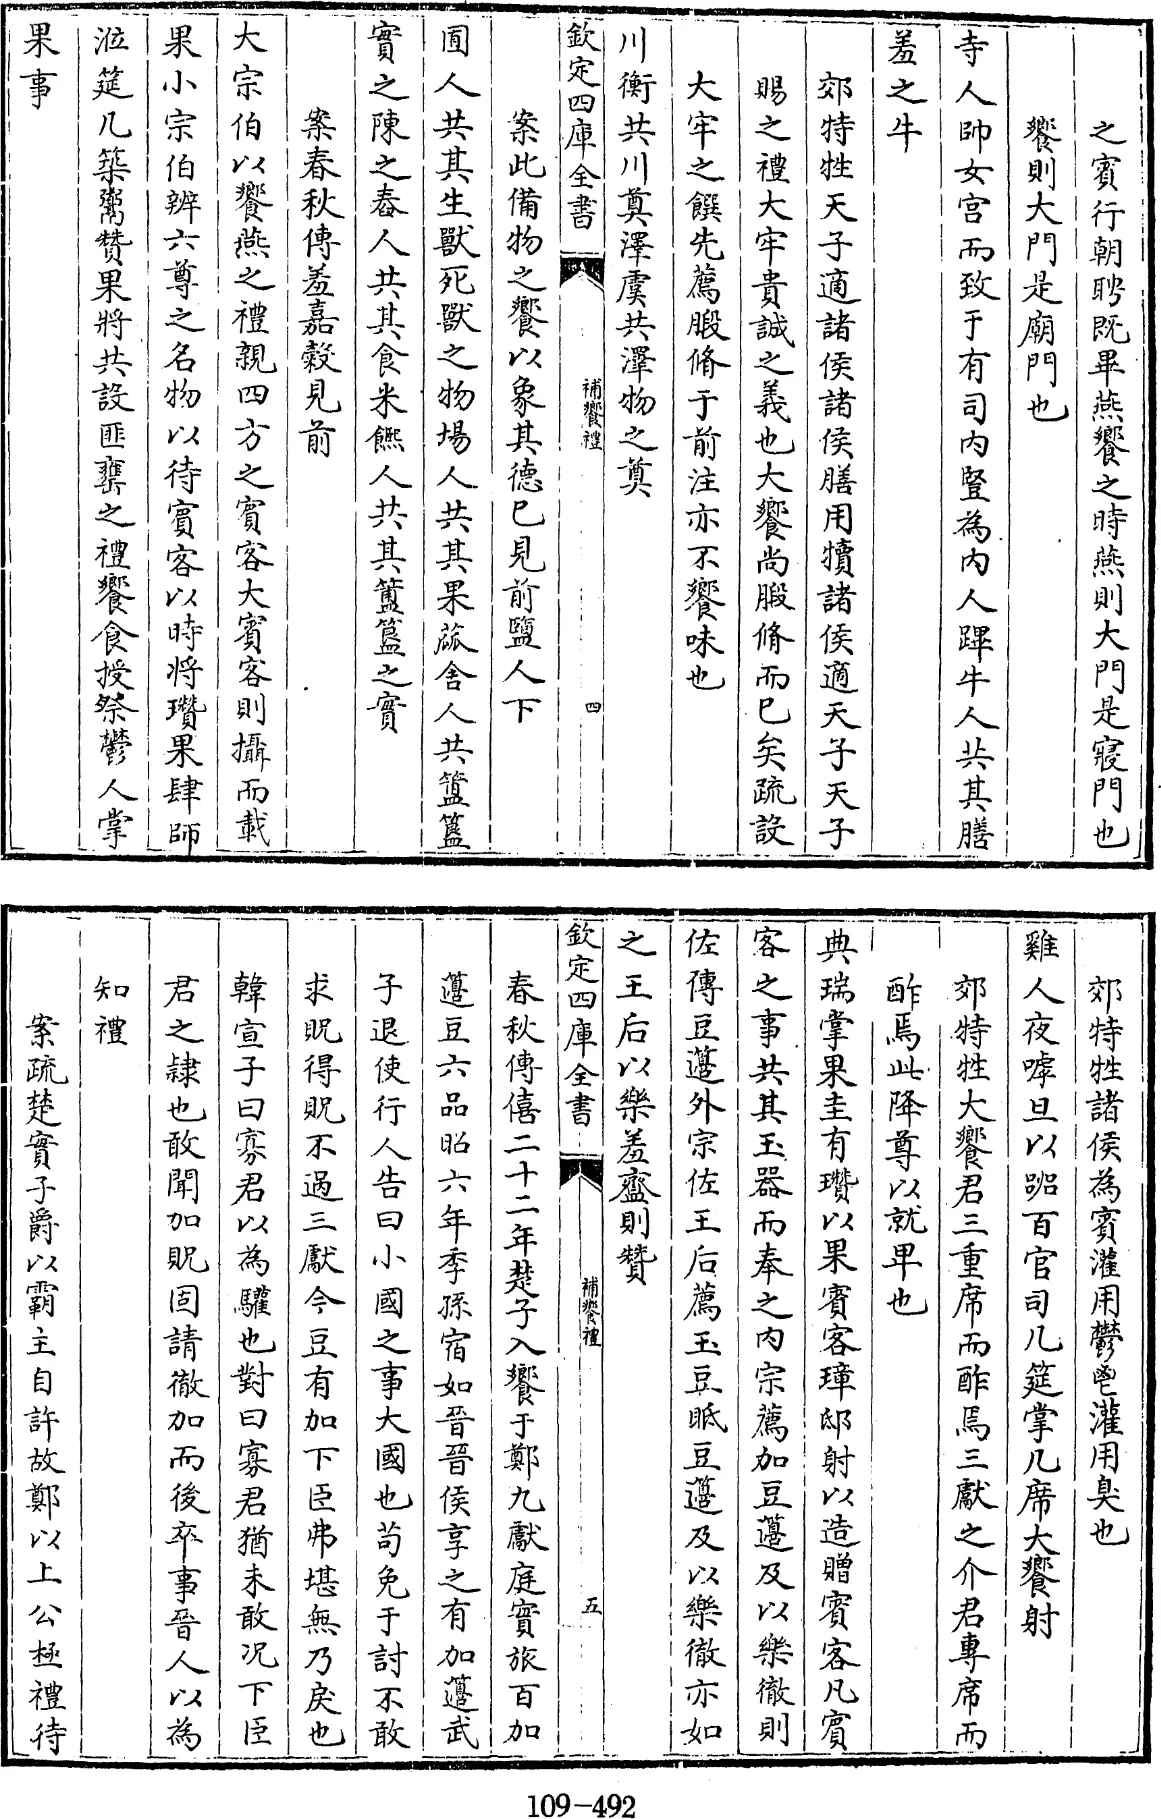 之賓行朝聘既畢燕饗之時燕則大門是寢門也
饗則大門是廟門也
寺人帥女宮而致于有司内豎為内人蹕牛人共其膳
羞之牛
郊特牲天子適諸侯諸侯膳用犢諸侯適天子天子
賜之禮大牢貴誠之義也大饗尚腶脩而已矣疏設
大牢之饌先薦腶脩于前注亦不饗味也
川衡共川奠澤虞共澤物之奠
欽定四庫全書
補饗禮
四
案此備物之饗以象其德已見前鹽人下
囿人共其生獸死獸之物場人共其果蓏舍人共簠簋
實之陳之舂人共其食米饎人共其簠簋之實
案春秋傳羞嘉穀見前
大宗伯以饗燕之禮親四方之賓客大賓客則攝而載
果小宗伯辨六尊之名物以待賓客以時將瓚果肆師
涖筵几築鬻贊果將共設匪罋之禮饗食授祭鬱人掌
果事
郊特牲諸侯為賓灌用鬱鬯灌用臭也
雞人夜嘑旦以嘂百官司几筵掌几席大饗射
郊特牲大饗君三重席而酢焉三獻之介君專席而
酢焉此降尊以就卑也
典瑞掌果圭有瓚以果賓客璋邸射以造贈賓客凡賓
客之事共其玉器而奉之内宗薦加豆籩及以樂徹則
佐傳豆籩外宗佐王后薦玉豆眡豆籩及以樂徹亦如
之王后以樂羞齍則贊
欽定四庫全書
補饗禮
五
春秋傳僖二十二年楚子入饗于鄭九獻庭實旅百加
籩豆六品昭六年季孫宿如晉晉侯享之有加籩武
子退使行人告曰小國之事大國也茍免于討不敢
求貺得貺不過三獻今豆有加下臣弗堪無乃戾也
韓宣子曰寡君以為驩也對曰寡君猶未敢况下臣
君之隸也敢聞加貺固請徹加而後卒事晉人以為
知禮
案疏楚實子爵以霸主自許故鄭以上公極禮待
109-492